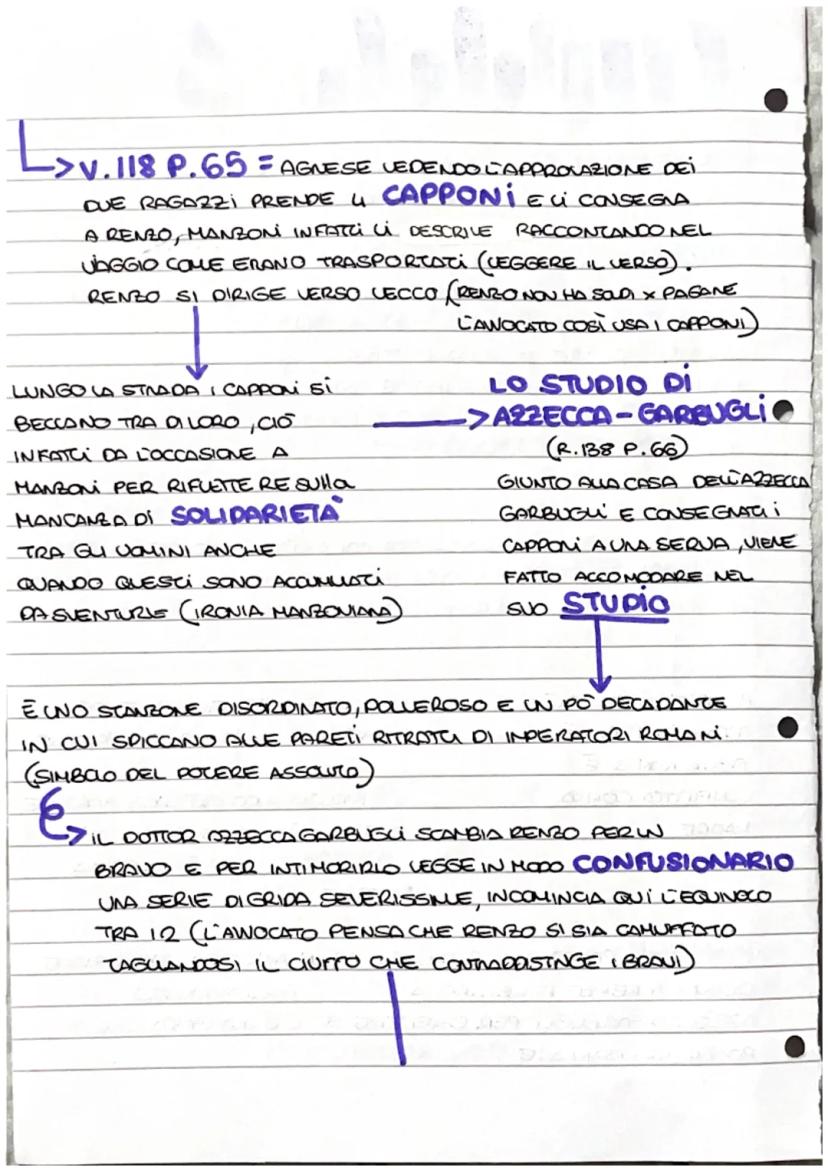 ↳ V. 118 P. 65 = AGNESE VEDENDO L'APPROVAZIONE DEI
DUE RAGAZZI PRENDE 4 CAPPONI E LI CONSEGNA
A RENZO, MANZONI INFATTI LI DESCRIVE RACCONTANDO NEL
VIAGGIO COME ERANO TRASPORTATI (LEGGERE IL VERSO).
RENZO SI DIRIGE VERSO LECCO (RENZO NON HA SOLDI x PAGARE
L'AVVOCATO COSÌ USA I CAPPONI)
LUNGO LA STRADA I CAPPONI SI
BECCANO TRA DI LORO, CIÒ
INFATTI DA L'OCCASIONE A
MANZONI PER RIFLETTERE SULLA
MANCANZA DI SOLIDARIETÀ
TRA GLI UOMINI ANCHE
QUANDO QUESTI SONO ACCUMULATI
DA SVENTURE (IRONIA MANZONIANA)
LO STUDIO DI
→ AZZECCA-GARBUGLI
(R. 138 P. 66)
GIUNTO ALLA CASA DELL'AZZECCA
GARBUGLI E CONSEGNATI I
CAPPONI A UNA SERVA, VIENE
FATTO ACCOMODARE NEL
SUO STUDIO
È UNO STANZONE DISORDINATO, POLVEROSO E UN PÒ DECADANTE
IN CUI SPICCANO ALLE PARETI RITRATTI DI IMPERATORI ROMANI.
(SIMBOLO DEL POTERE ASSOLUTO)
IL DOTTOR AZZECCAGARBUGLI SCAMBIA RENZO PER UN
BRAVO E PER INTIMORIRLO LEGGE IN MODO CONFUSIONARIO
UNA SERIE DI GRIDA SEVERISSIME, INCOMINCIA QUI L'EQUIVOCO
TRA I 2 (L'AVVOCATO PENSA CHE RENZO SI SIA CAMUFFATO
TAGLIANDOSI IL CIUFFO CHE CONTRADDISTINGE I BRAVI)